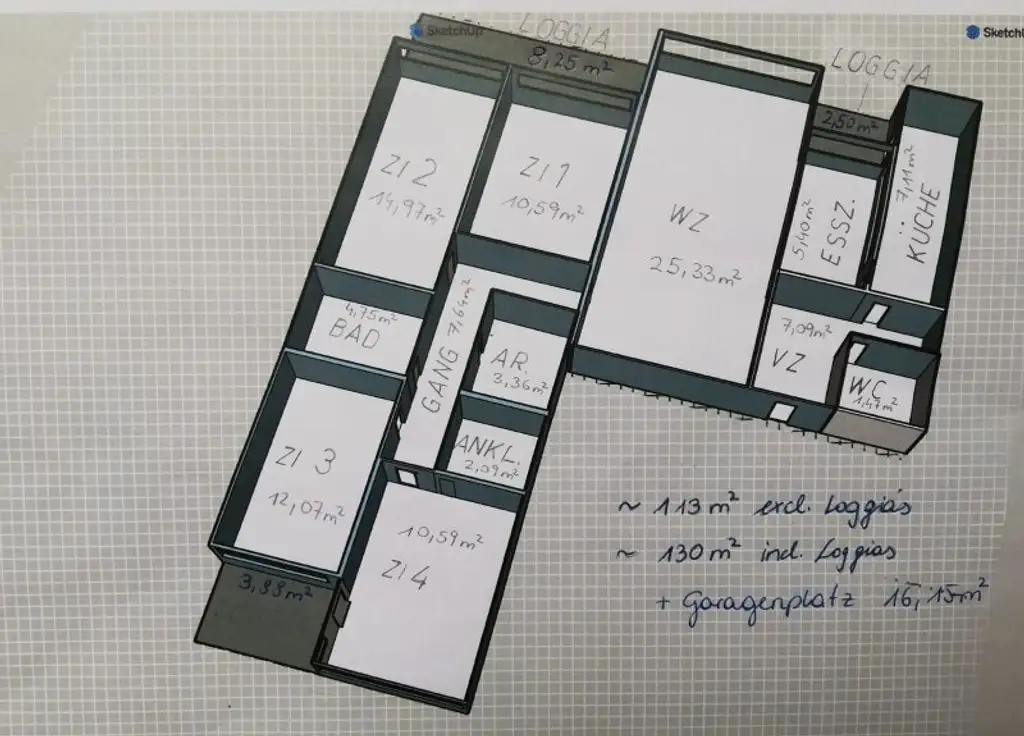 SketchUp
LOGGIA
8,25 m²
SketchU
LOGGIA
2,50 m²
ZI 2
14,97 m²
ZI 1
10,59 m²
WZ
25,33 m²
5,40 m²
ESSZ.
7,11 m²
KÜCHE
4,75 m²
BAD
GANG 7,64 m²
AR.
3,36 m²
7,09 m²
VZ
WC
1,47 m²
ANKL.
2,09 m²
ZI 3
12,07 m²
10,59 m²
ZI 4
m²
~ 113 m² excl. Loggias
~ 130 m² incl. Loggias
+ Garagenplatz 16,15 m²